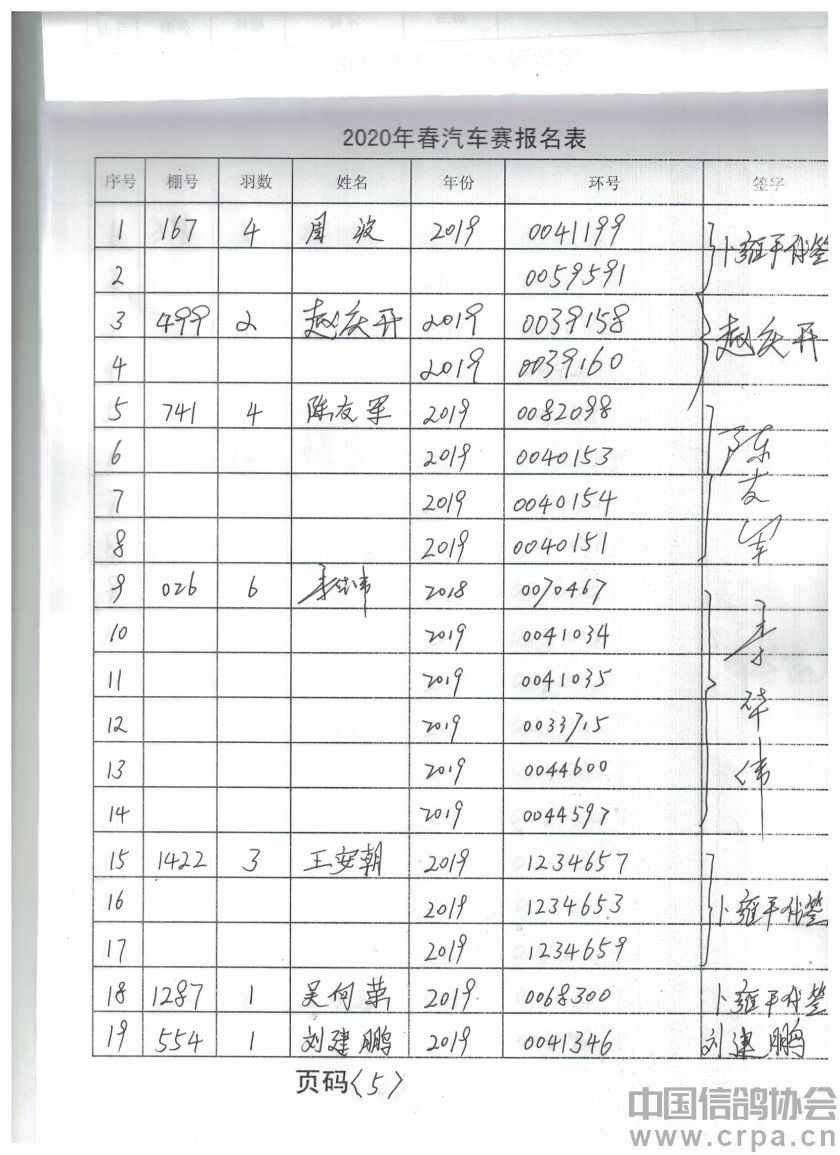 2020年春汽车赛报名表
序号 棚号 羽数 姓名 年份 环号 签字
1 167 4 周波 2019 0041199 卜雍平代签
2 0059591
3 499 2 赵庆开 2019 0039158 赵庆开
4 2019 0039160
5 741 4 陈友军 2019 0082098 陈友军
6 2019 0040153
7 2019 0040154
8 2019 0040151
9 026 6 2018 0070467
10 2019 0041034
11 2019 0041035
12 2019 0033715
13 2019 0044600
14 2019 0044597
15 1422 3 王安朝 2019 1234657 卜雍平代签
16 2019 1234653
17 2019 1234659
18 1287 1 吴何荣 2019 0068300 卜雍平代签
19 554 1 刘建鹏 2019 0041346 刘建鹏
页码〈5〉
中国信鸽协会
www.crpa.cn